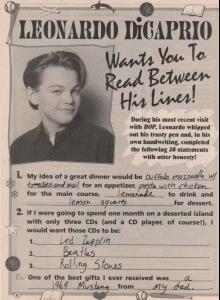 LEONARDO DICAPRIO
Wants You To
Read Between
His Lines!
During his most recent visit
with BOP, Leonardo whipped
out his trusty pen and, in his
own handwriting, completed
the following 20 statements
with utter honesty!
1. My idea of a great dinner would be buffalo mozzarella w/
tomatoes and basil for an appetizer, pasta with chicken
for the main course, lemonade to drink and
lemon squares for dessert.
2. If I were going to spend one month on a deserted island
with only three CDs (and a CD player, of course!), I
would want those CDs to be:
1. Led Zepplin
2. Beatles
3. Rolling Stones
3. One of the best gifts I ever received was a
1969 Mustang from my dad.